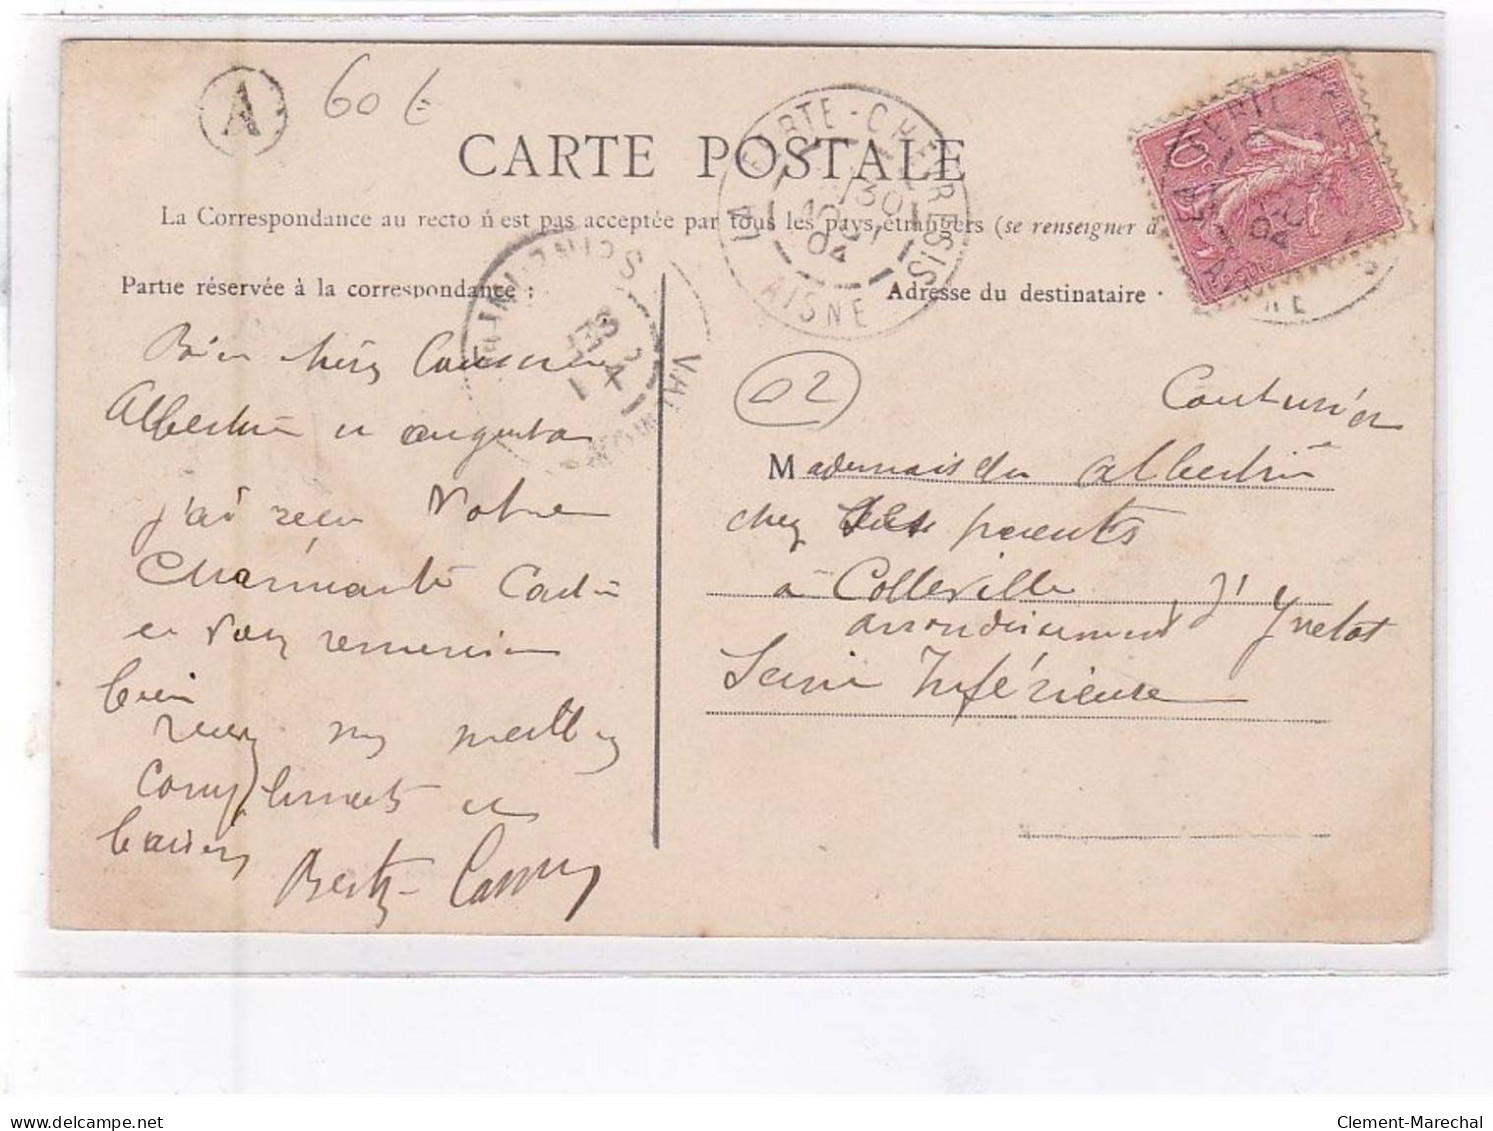 A
60 €
CARTE POSTALE
LA FERTE-CHEVRESIS
AISNE
04
La Correspondance au recto n'est pas acceptée par tous les pays étrangers (se renseigner à
Partie réservée à la correspondance :
Adresse du destinataire
10
02
Bien chère Cousine
Albertine et augusta
j'ai reçu Votre
Charmante Carte
et Vous remercie
bien
recevez mes meilleurs
compliments et
baisers
Berthe
Couturier
Mademoiselle Albertine
chez ses parents
à Colleville
arrondissement d'Yvetot
Seine Inférieure
delcampe.net
Clement-Marechal